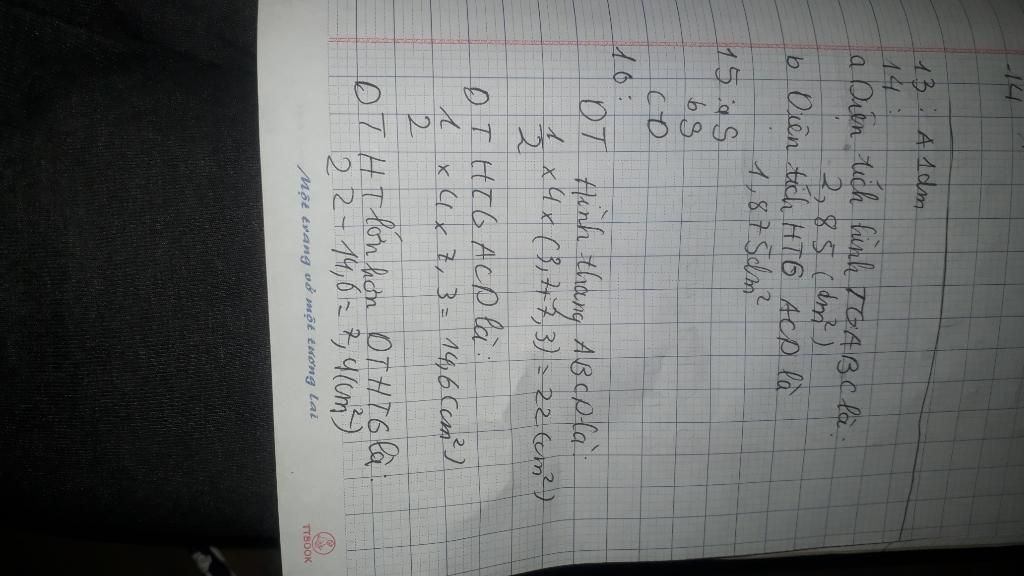 14
13 : A 1dm
14 :
a Diện tích hình TGABC là:
2,85 (dm²)
b Diện tích HTG ACD là
1,875dm²
15 : a S
b S
c Đ
16 :
DT Hình thang ABCD là:
1/2 x 4 x (3,7+7,3) = 22 (cm²)
DT HTG ACD là:
1/2 x 4 x 7,3 = 14,6 (cm²)
DT HT lớn hơn DTHTG là:
22 - 14,6 = 7,4 (cm²)
Một trang vở một tương lai
TTBOOK